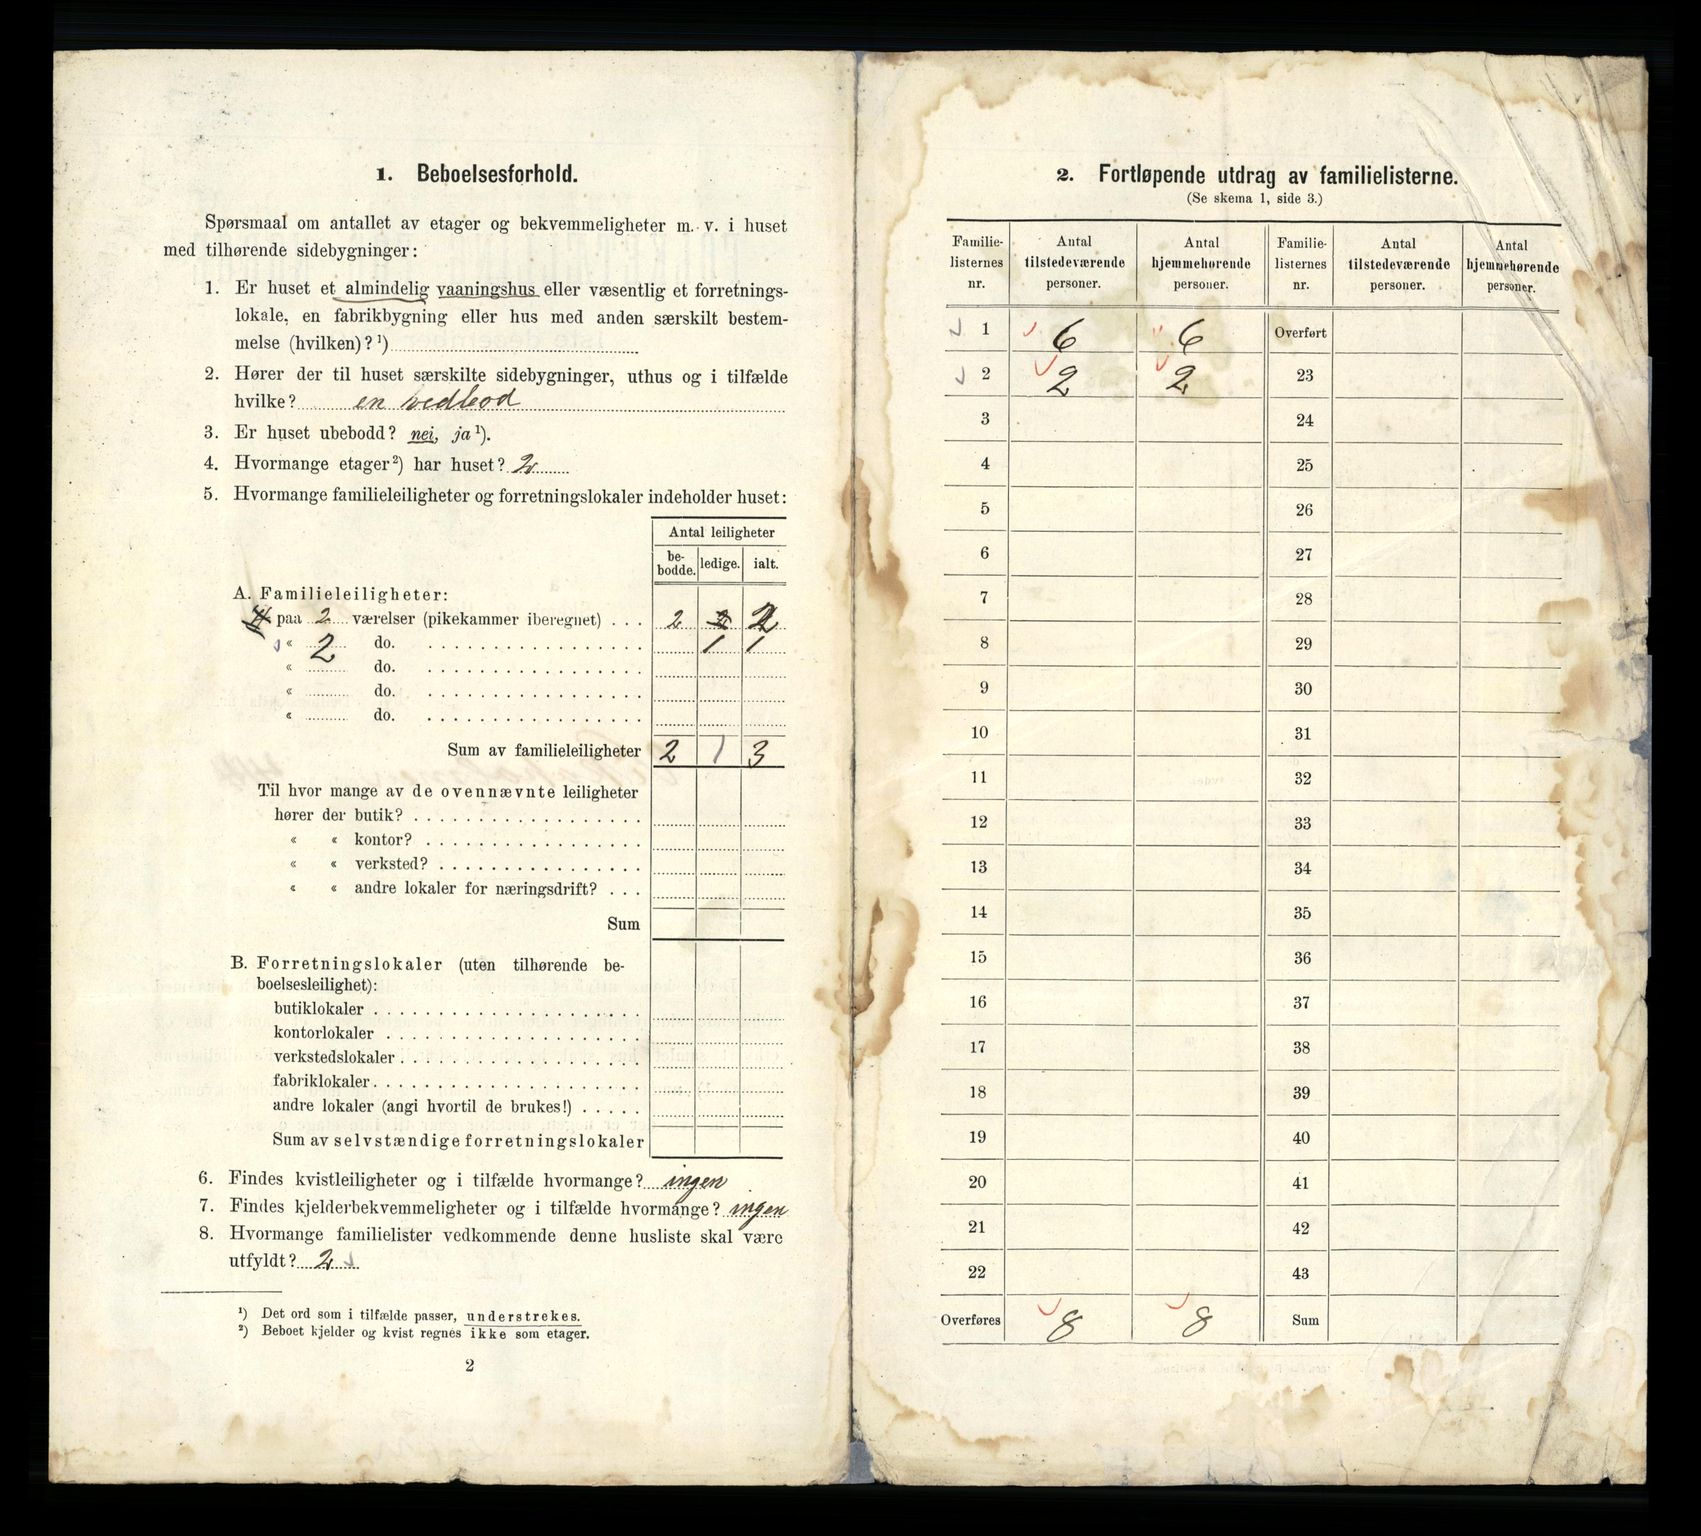 1. Beboelsesforhold.
Spørsmaal om antallet av etager og bekvemmeligheter m. v. i huset
med tilhørende sidebygninger:
1. Er huset et almindelig vaaningshus eller væsentlig et forretnings-
lokale, en fabrikbygning eller hus med anden særskilt bestem-
melse (hvilken)?¹)
2. Hører der til huset særskilte sidebygninger, uthus og i tilfælde
hvilke? en vedbod
3. Er huset ubebodd? nei, ja¹).
4. Hvormange etager²) har huset? 2
5. Hvormange familieleiligheter og forretningslokaler indeholder huset:
Antal leiligheter
be-
bodde. ledige. ialt.
A. Familieleiligheter:
paa 2 værelser (pikekammer iberegnet) . . . 2 2
« 2 do. 1 1
« do.
« do.
« do.
Sum av familieleiligheter 2 1 3
Til hvor mange av de ovennævnte leiligheter
hører der butik?
« « kontor?
« « verksted?
« « andre lokaler for næringsdrift?
Sum
B. Forretningslokaler (uten tilhørende be-
boelsesleilighet):
butiklokaler
kontorlokaler
verkstedslokaler
fabriklokaler
andre lokaler (angi hvortil de brukes!)
Sum av selvstændige forretningslokaler
6. Findes kvistleiligheter og i tilfælde hvormange? ingen
7. Findes kjelderbekvemmeligheter og i tilfælde hvormange? ingen
8. Hvormange familielister vedkommende denne husliste skal være
utfyldt? 2
¹) Det ord som i tilfælde passer, understrekes.
²) Beboet kjelder og kvist regnes ikke som etager.
2
2. Fortløpende utdrag av familielisterne.
(Se skema 1, side 3.)
Familie- Antal Antal Familie- Antal Antal
listernes tilstedeværende hjemmehørende listernes tilstedeværende hjemmehørende
nr. personer. personer. nr. personer. personer.
1 6 6 Overført
2 2 2 23
3 24
4 25
5 26
6 27
7 28
8 29
9 30
10 31
11 32
12 33
13 34
14 35
15 36
16 37
17 38
18 39
19 40
20 41
21 42
22 43
Overføres 8 8 Sum